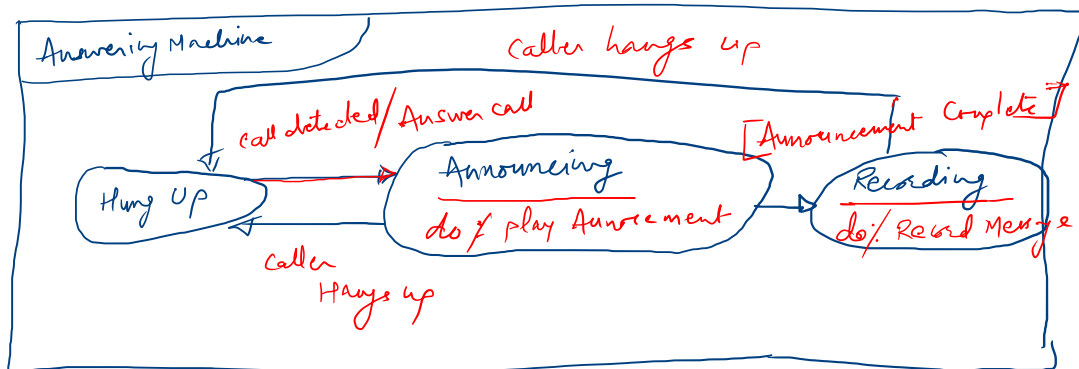 Answering Machine
Caller hangs up
call detected/Answer call
[Announcement Complete]
Hung Up
Announcing
do/ play Annoucement
Recording
do/ Record Message
Caller
Hangs up